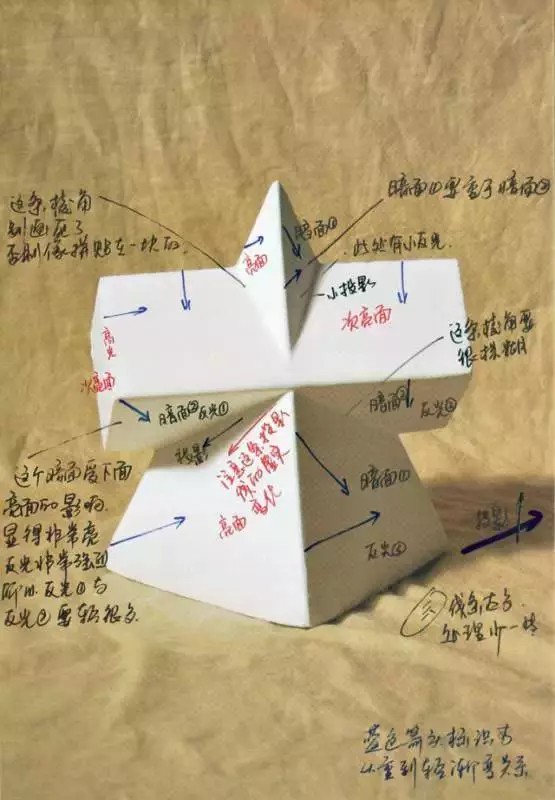 这条棱角
别画死了
否则像拼贴在一块的
暗面①要重于暗面②
此处有小反光.
亮面
暗面②
小投影
次亮面
高光
次亮面
这条棱角要
很模糊
暗面②反光①
暗面②
反光②
投影
注意这条投影
线的虚实
变化
亮面
暗面①
反光②
这个暗面受下面
亮面的影响.
显得非常亮
反光非常强烈
所以反光①与
反光②要轻很多.
投影
线条方了
处理少一些
蓝色箭头标识为
从重到轻渐变关系